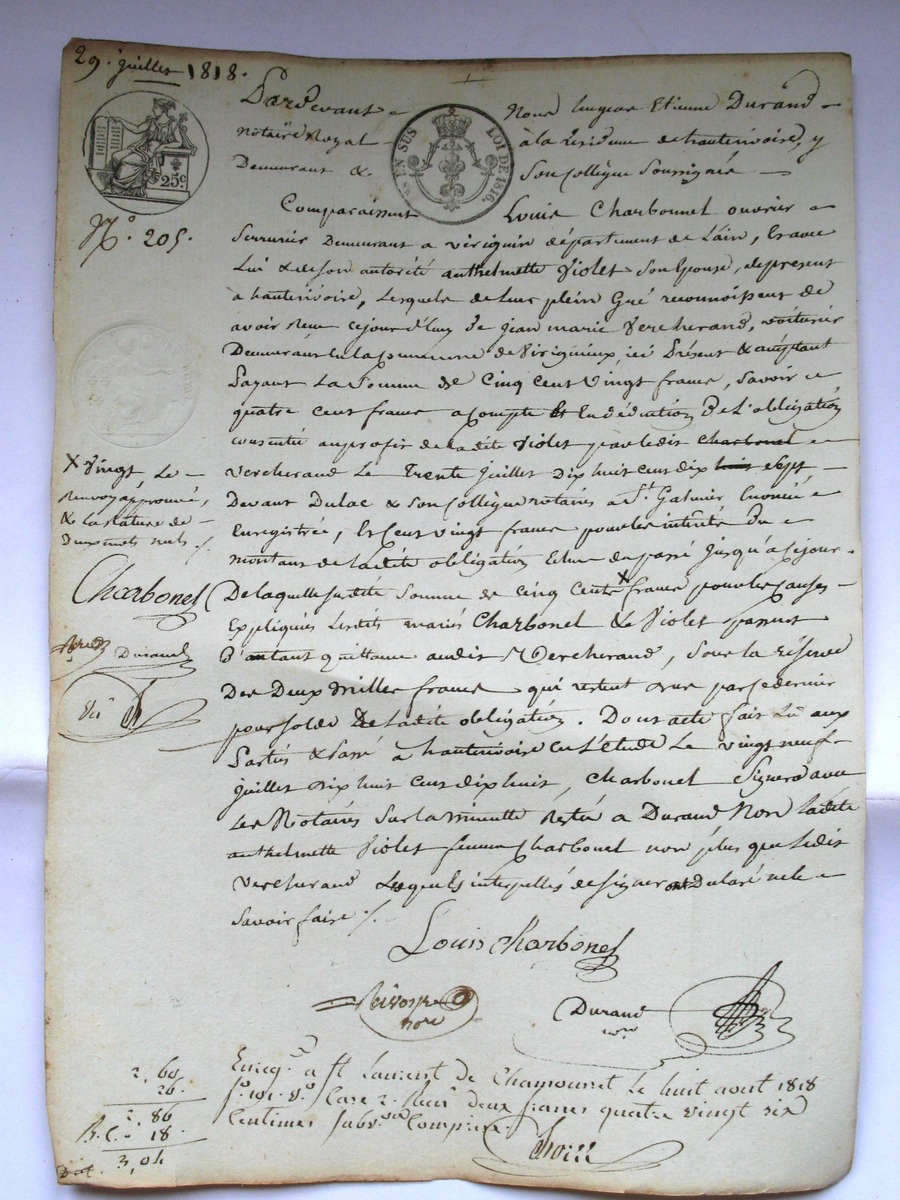 29. juillet 1818.
Pardevant Nous hugues Etienne Durand
Notaire Royal à la résidence de hauterivoire, y
Demeurant & Son Collègue Soussignés
EN SUS LOI DE 1816.
25c
N.° 205.
Comparaissent Louis Charbonnel ouvrier
Serrurier Demeurant a virignin département de L'ain, & avec
Lui & de son autorité anthelmette Violet Son Epouse, de présent
à hauterivoire, Lesquels de leur plein Gré reconnoissent de
avoir Reçu cejourd'huy de jean marie Vercherand, voiturier
Demeurant en la Commune de Virigneux, ici Présent & acceptant
Payant La Somme de Cinq Cent Vingt francs, Savoir
quatre Cent francs acompte Et En déduction De L'obligation
consentie au profit de ladite Violet par ledit Charbonel
Vercherand Le Trente Juillet Dix huit Cent dix huit & Sept
Devant Dulac & son Collègue notaires a St. Galmier
Enregistrée, Et Cent vingt francs pour les intérêts Du
montant de Ladite obligation Echus du passé jusqu'a cejour
De laquelle Susdite Somme de Cinq Cents X francs pour les Causes
Expliquées Lesdits mariés Charbonel & Violet passent
D'autant quittance audit Vercherand, Sous la réserve
Des Deux Milles francs qui restent dus par ce dernier
pour solde De Ladite obligation. Dont acte fait Lu aux
Parties & Passé à hauterivoire En L'étude Le vingt neuf
juillet Dix huit Cent dix huit, Charbonel Signera avec
Les Notaires Sur la minutte Restée a Durand Non Ladite
anthelmette Violet femme Charbonel non plus que Ledit
Vercherand Lesquels interpellés de signer ont Declaré ne le
Savoir faire ./.
X Vingt, Le
Renvoy approuvé,
& la rature de
Deux mots nuls ./.
Charbonel
Durand
Louis Charbonel
nore
Durand
nore
Enregé a St Laurent de Chamousset Le huit aout 1818
fo. 101. Vo. Case 2. Reçu deux francs quatre vingt six
Centimes Subvon Comprise.
2, 60
26.
2, 86
18.
3, 04